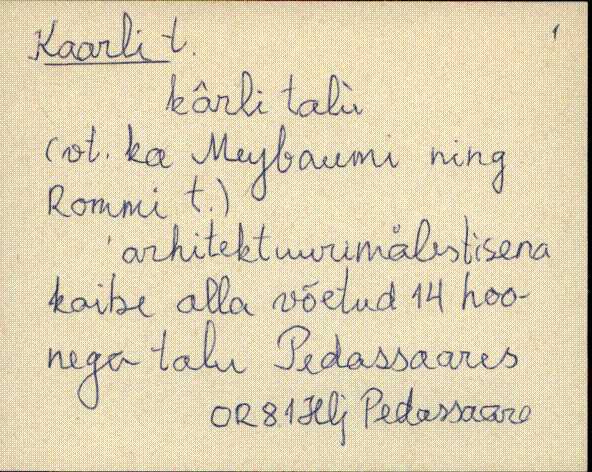 Kaarli t. 1
kârli talù
(vt. ka Meybaumi ning
Rommi t.)
'arhitektuurimälestisena
kaitse alla võetud 14 hoo-
nega talu Pedassaares
OR81 Hlj Pedassaare